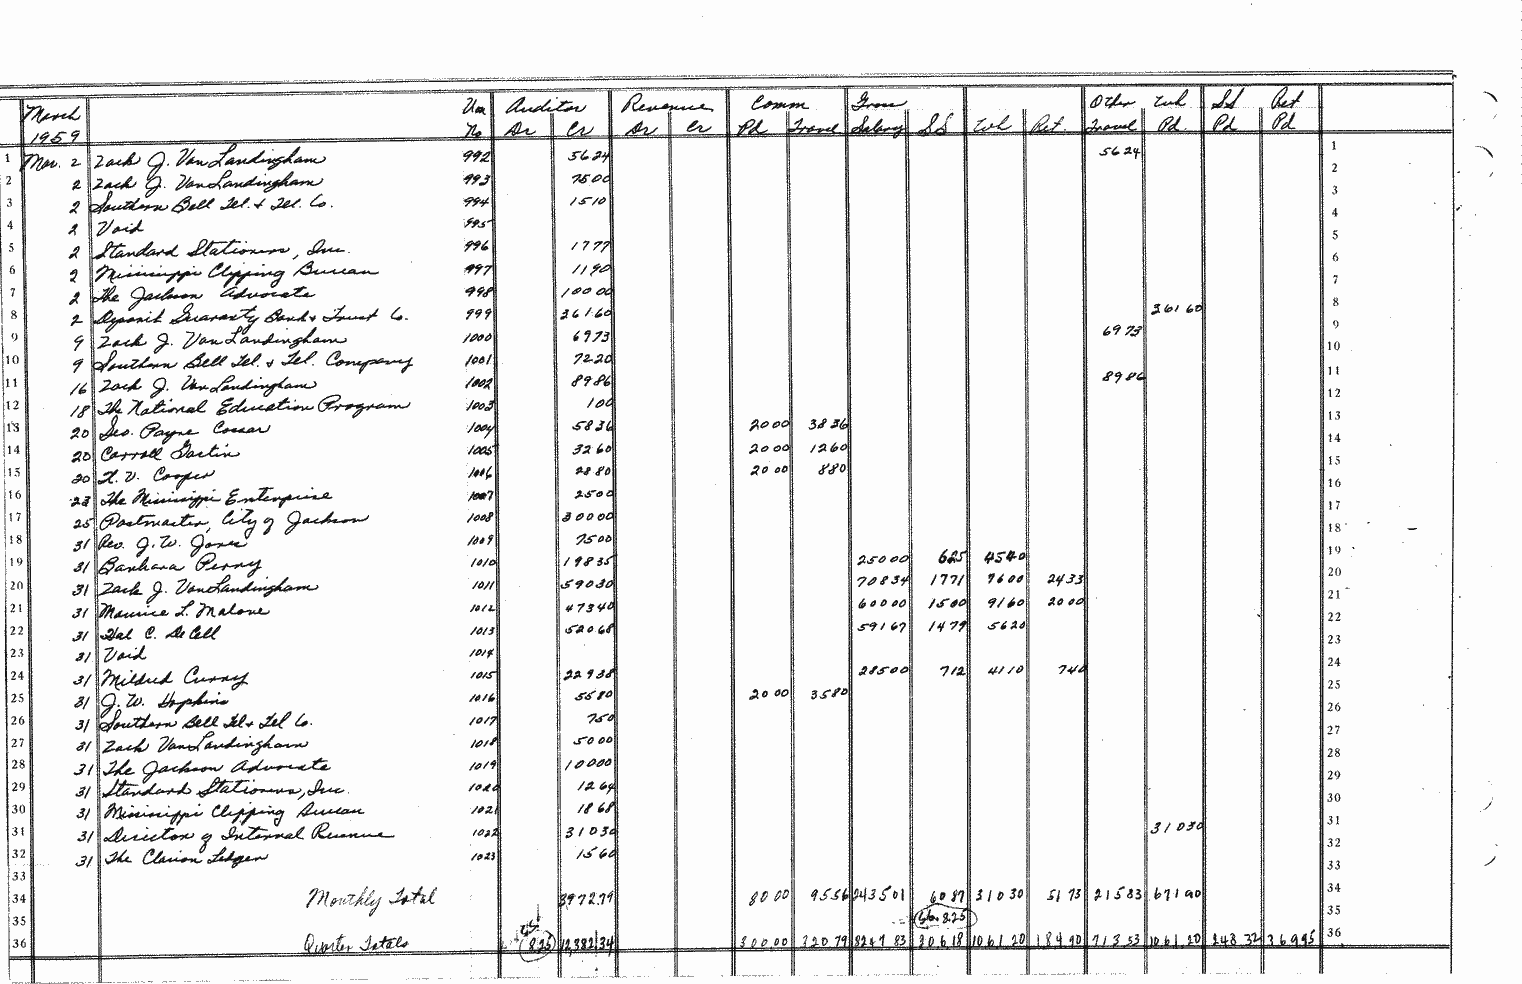 March 1959 Vou No Auditor Dr Cr Revenue Dr Cr Comm Pd Travel Gross Salary SS Wh Ret. Other Travel Wh Pd. SS Pd Ret Pd
1 Mar. 2 Zack J. VanLandingham 992 56 24 56 24 1
2 2 Zack J. VanLandingham 993 75 00 2
3 2 Southern Bell Tel. & Tel. Co. 994 15 10 3
4 2 Void 995 4
5 2 Standard Stationers, Inc. 996 17 77 5
6 2 Mississippi Clipping Bureau 997 11 90 6
7 2 The Jackson Advocate 998 100 00 7
8 2 Deposit Guaranty Bank & Trust Co. 999 361 60 361 60 8
9 9 Zack J. VanLandingham 1000 69 73 69 73 9
10 9 Southern Bell Tel. & Tel. Company 1001 72 20 10
11 16 Zack J. VanLandingham 1002 89 86 89 86 11
12 18 The National Education Program 1003 1 00 12
13 20 Geo. Payne Cossar 1004 58 36 20 00 38 36 13
14 20 Carroll Gartin 1005 32 60 20 00 12 60 14
15 20 W. V. Cooper 1006 28 80 20 00 8 80 15
16 23 The Mississippi Enterprise 1007 25 00 16
17 25 Postmaster, City of Jackson 1008 300 00 17
18 31 Rev. J. W. Jones 1009 75 00 18
19 31 Barbara Perry 1010 198 35 250 00 6 25 45 40 19
20 31 Zack J. VanLandingham 1011 590 30 708 34 17 71 76 00 24 33 20
21 31 Maurice L. Malone 1012 473 40 600 00 15 00 91 60 20 00 21
22 31 Hal C. DeCell 1013 520 68 591 67 14 79 56 20 22
23 31 Void 1014 23
24 31 Mildred Curry 1015 229 38 285 00 7 12 41 10 7 40 24
25 31 J. W. Hopkins 1016 55 80 20 00 35 80 25
26 31 Southern Bell Tel & Tel Co. 1017 7 50 26
27 31 Zack VanLandingham 1018 50 00 27
28 31 The Jackson Advocate 1019 100 00 28
29 31 Standard Stationers, Inc. 1020 12 64 29
30 31 Mississippi Clipping Bureau 1021 18 68 30
31 31 Director of Internal Revenue 1022 310 30 310 30 31
32 31 The Clarion Ledger 1023 15 60 32
33 33
34 Monthly Total 3972.79 80 00 95 56 2435 01 60 87 310 30 51 73 215 83 671 90 34
35 8.25 35
36 Quarter Totals 8.25 12,382 34 300.00 320 79 8247 83 206 18 1061 20 184 90 713 53 1061 20 248 32 369 95 36